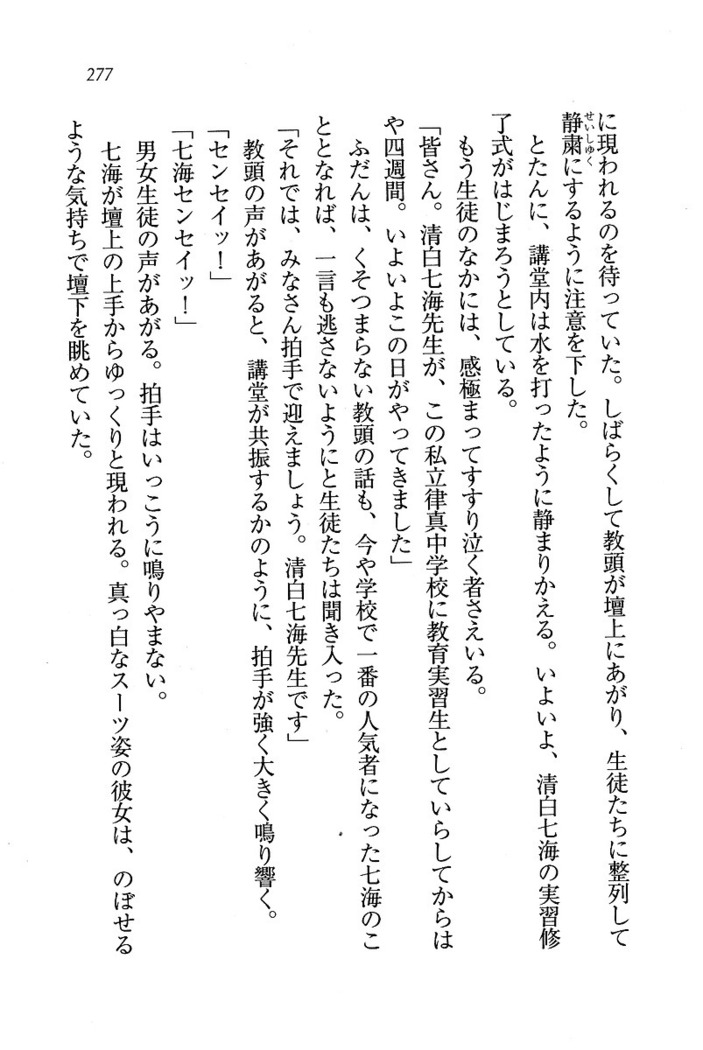 277
に現われるのを待っていた。しばらくして教頭が壇上にあがり、生徒たちに整列して
静粛にするように注意を下した。
せいしゅく
とたんに、講堂内は水を打ったように静まりかえる。いよいよ、清白七海の実習修
了式がはじまろうとしている。
もう生徒のなかには、感極まってすすり泣く者さえいる。
「皆さん。清白七海先生が、この私立律真中学校に教育実習生としていらしてからは
や四週間。いよいよこの日がやってきました」
ふだんは、くそつまらない教頭の話も、今や学校で一番の人気者になった七海のこ
ととなれば、一言も逃さないようにと生徒たちは聞き入った。
「それでは、みなさん拍手で迎えましょう。清白七海先生です」
教頭の声があがると、講堂が共振するかのように、拍手が強く大きく鳴り響く。
「センセイッ！」
「七海センセイッ！」
男女生徒の声があがる。拍手はいっこうに鳴りやまない。
七海が壇上の上手からゆっくりと現われる。真っ白なスーツ姿の彼女は、のぼせる
ような気持ちで壇下を眺めていた。